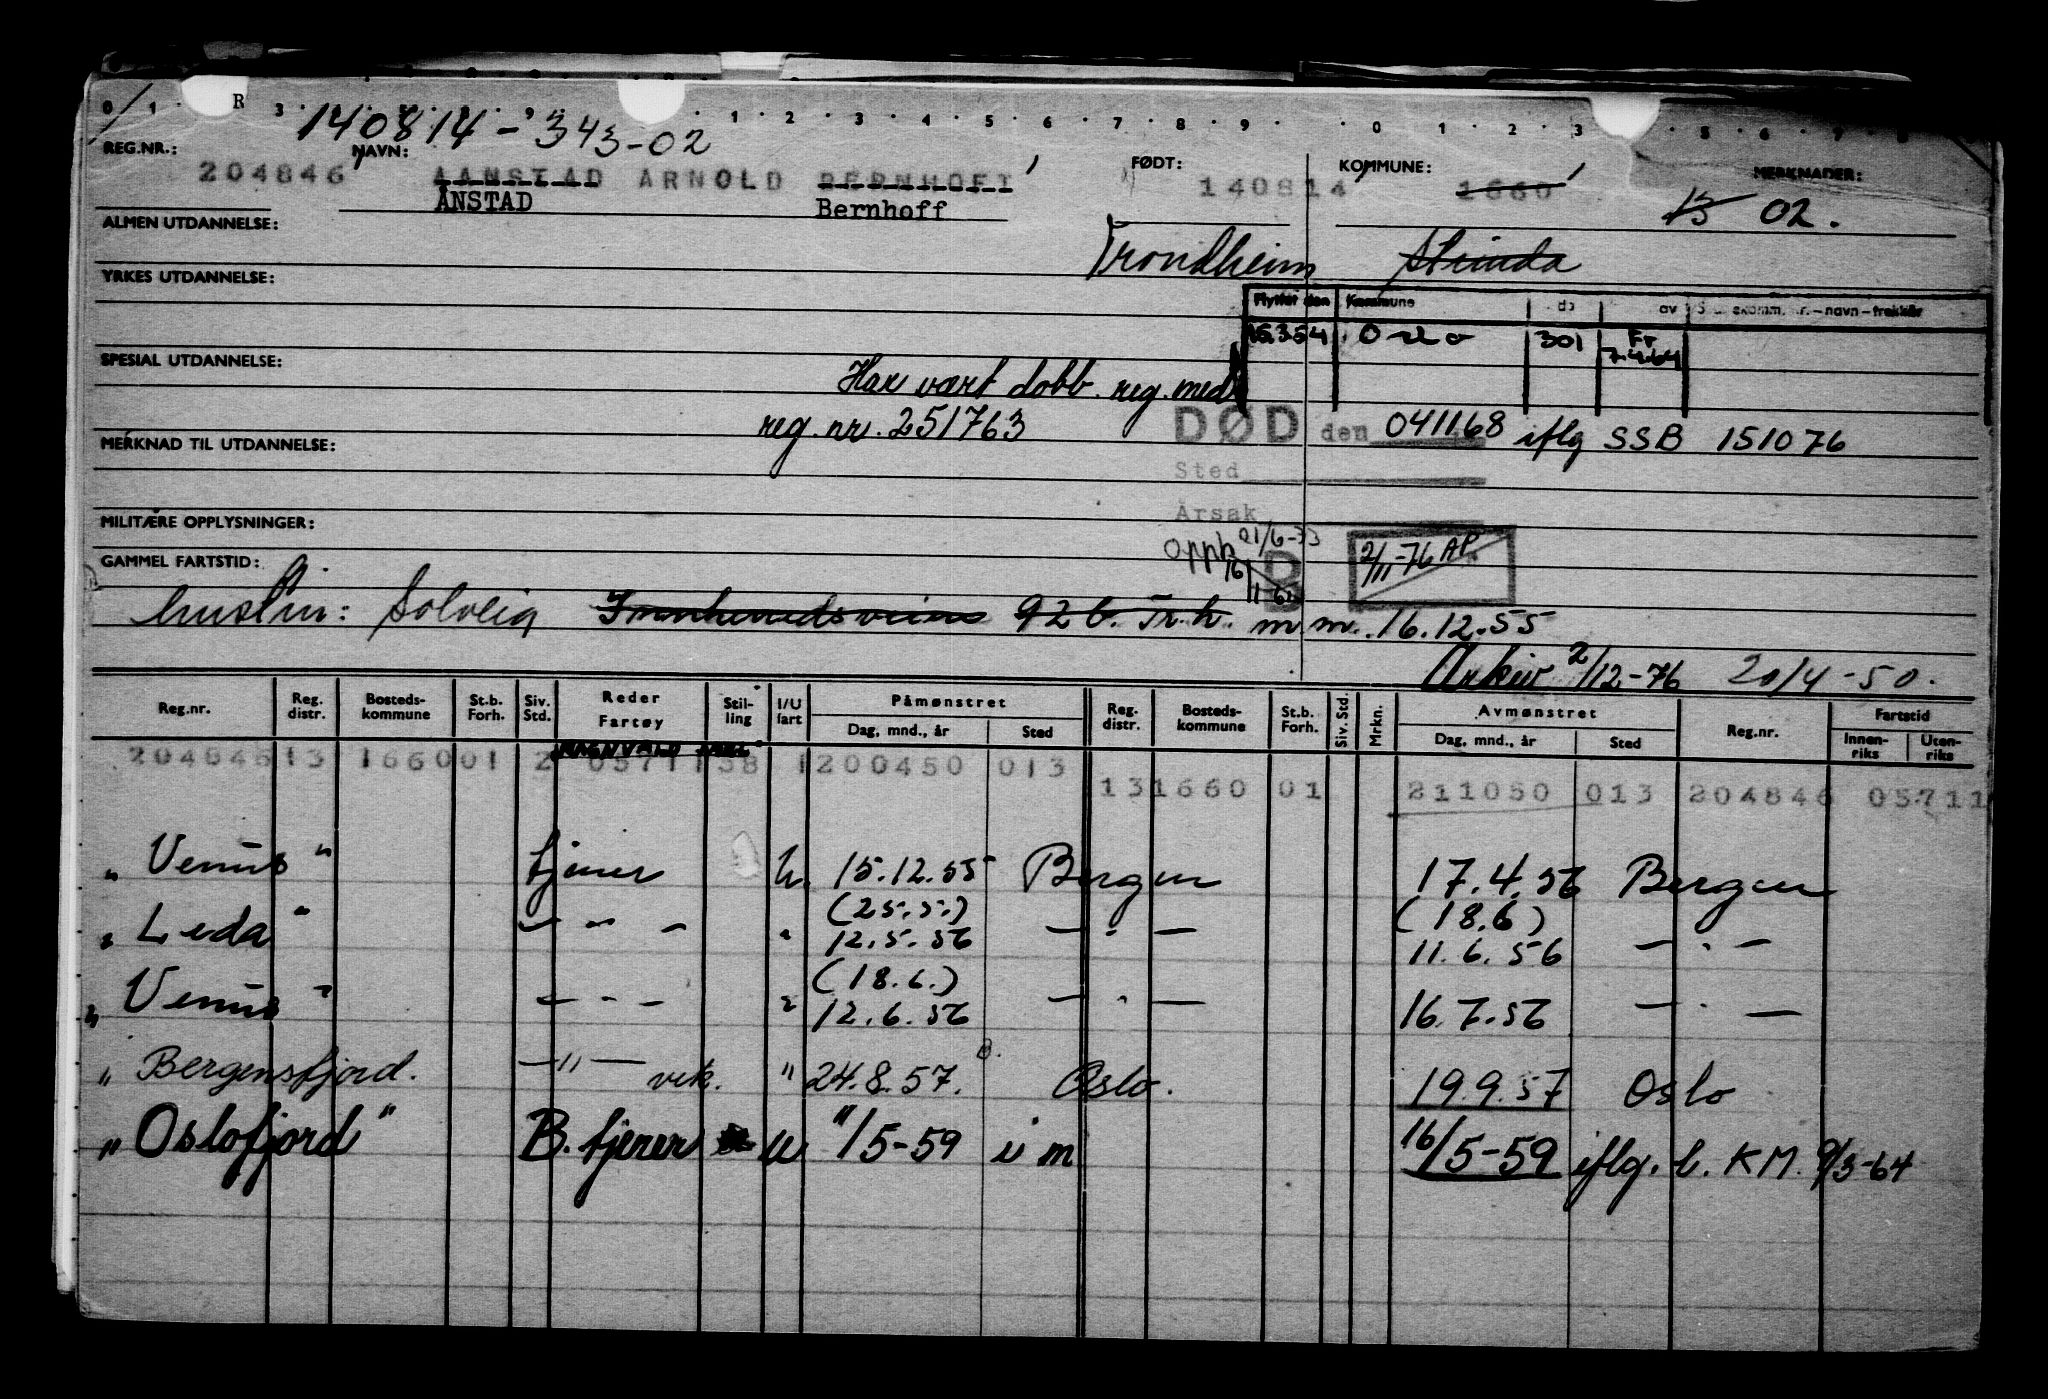 140814-343-02
REG.NR.: NAVN: FØDT: KOMMUNE: MERKNADER:
204846 AANSTAD ARNOLD BERNHOFT 140814 1660
ÅNSTAD Bernhoff 13 02.
ALMEN UTDANNELSE:
Trondheim Strinda
YRKES UTDANNELSE:
Flyttet den Kommune av – navn – trekkår
15354 Oslo 301 Fr 7.4.64
SPESIAL UTDANNELSE:
Har vært dobb. reg. med
reg. nr. 251763
DØD den 041168 iflg SSB 151076
MERKNAD TIL UTDANNELSE:
Sted
Årsak
MILITÆRE OPPLYSNINGER:
Opph 21/6-33 B 2/11-76 AP
GAMMEL FARTSTID:
hustru: Solveig Innherredsveien 92 b. Tr.h. m m. 16.12.55
Arkiv 2/12-76 20/4-50.
Reg.nr. Reg. distr. Bosteds-kommune St.b. Forh. Siv. Std. Reder Fartøy Stil-ling I/U fart Påmønstret Dag, mnd., år Sted Reg. distr. Bosteds-kommune St.b. Forh. Siv. Std. Mrkn. Avmønstret Dag, mnd., år Sted Reg.nr. Fartstid Innen-riks Uten-riks
RAGNVALD JARL
204846 13 1660 01 2 05711 38 1 200450 013
13 1660 01 211050 013 204846 05711
" Venus " tjener u. 15.12.55 Bergen 17.4.56 Bergen
(25.5.) (18.6)
" Leda " — " — " 12.5.56 — " — 11.6.56 — " —
(18.6.)
" Venus " — " — " 12.6.56 — " — 16.7.56 — " —
" Bergensfjord. — " — vik. " 24.8.57. Oslo. 19.9.57 Oslo
" Oslofjord " B. tjener u "/5-59 i m 16/5-59 iflg. b. KM. 9/3-64